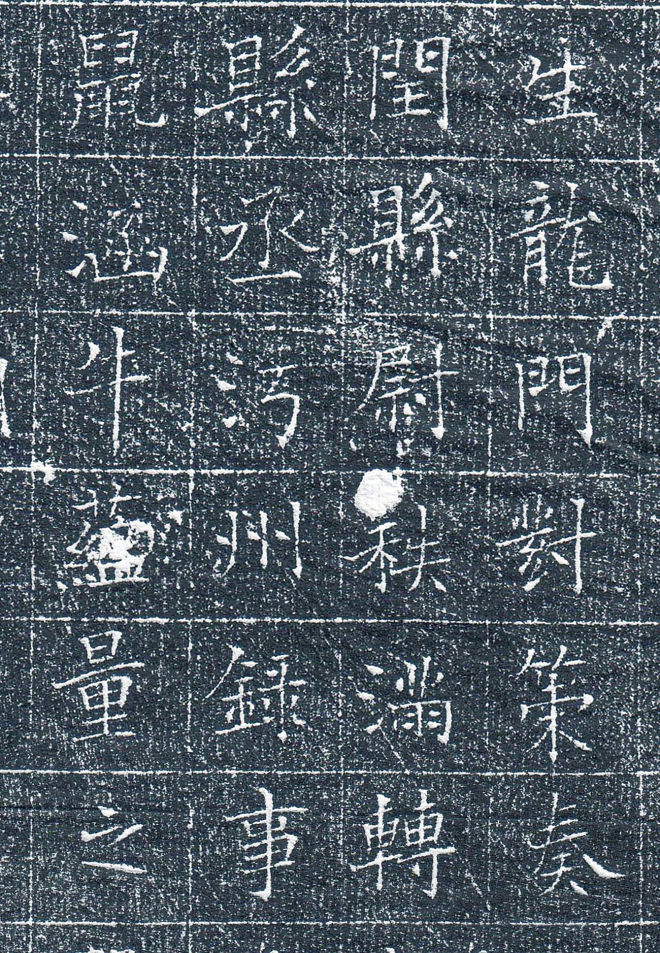 生龍門對策奏
閏縣尉秩滿轉
縣丞沔州錄事
鼠涵牛蘊量之